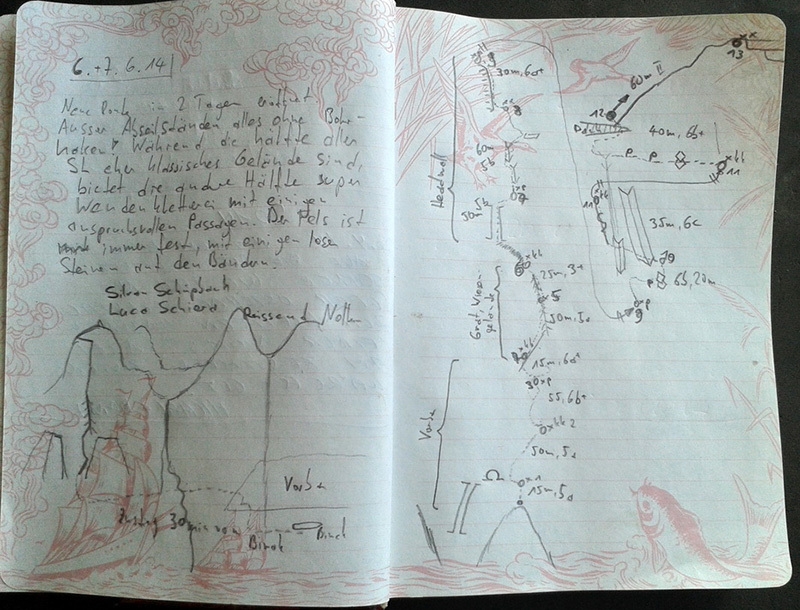 6.+7.6.14
Neue Route in 2 Tagen eröffnet
Ausser Abseilständen alles ohne Bohr-
haken! Während die hälfte aller
SL eher klassisches Gelände sind,
bietet die andre Hälfte super
Wendenkletterei mit einigen
anspruchsvollen Passagen. Der Fels ist
immer fest, mit einigen losen
Steinen auf den Bändern.
Silvan Schüpbach
Luca Schiera
Reissend
Nollen
Vorbau
Zustieg 30min von
Biwak
Biwak
13
60m II
12
40m, 6b+
P
P
11
11
35m, 6c
10
6b, 20m
9
Headwall
30m, 6a+
8
60m
5b
7
50m, 5b
6
25m, 3a
5
50m, 5a
Grat,
gelände
15m, 6a+
3
55, 6b+
2
50m, 5a
Vorbau
1
15m, 5a